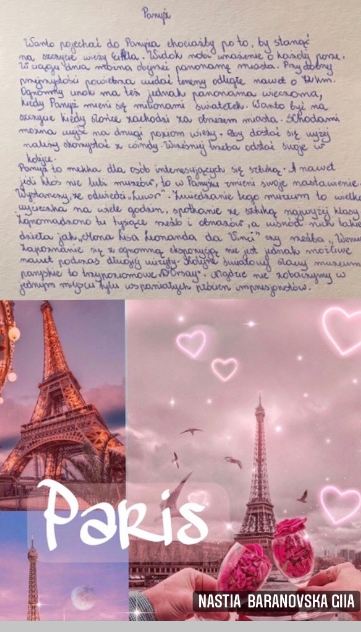 Paryż
Warto pojechać do Paryża chociażby po to, by stanąć
na szczycie wieży Eiffla. Widok robi wrażenie o każdej porze.
W ciągu dnia można objąć panoramę miasta. Przy dobrej
przejrzystości powietrza widać tereny odległe nawet o 70 km.
Ogromny urok ma też jednak panorama wieczorna,
kiedy Paryż mieni się milionami światełek. Warto być na
szczycie kiedy słońce zachodzi za obrazem miasta. Schodami
można wyjść na drugi poziom wieży. Aby dostać się wyżej
należy skorzystać z windy. Wcześniej trzeba odstać swoje w
kolejce.
Paryż to mekka dla osób interesujących się sztuką. A nawet
jeśli ktoś nie lubi muzeów, to w Paryżu zmieni swoje nastawienie.
Wystarczy, że odwiedzi „Luwr". Zwiedzanie tego muzeum to wielka
wycieczka na wiele godzin, spotkanie ze sztuką najwyższej klasy.
Zgromadzono tu tysiące rzeźb i obrazów, a wśród nich takie
dzieła jak „Mona Lisa Leonarda da Vinci" czy rzeźba „Wenus
Zapoznanie się z ogromną ekspozycją nie jest jednak możliwe
nawet podczas długiej wizyty. światowej sławy muzeum
paryskie to Orsay". Nigdzie nie zobaczymy w
jednym miejscu tylu wspaniałych płócien impresjonistów.
Paris
NASTIA BARANOVSKA GIIA